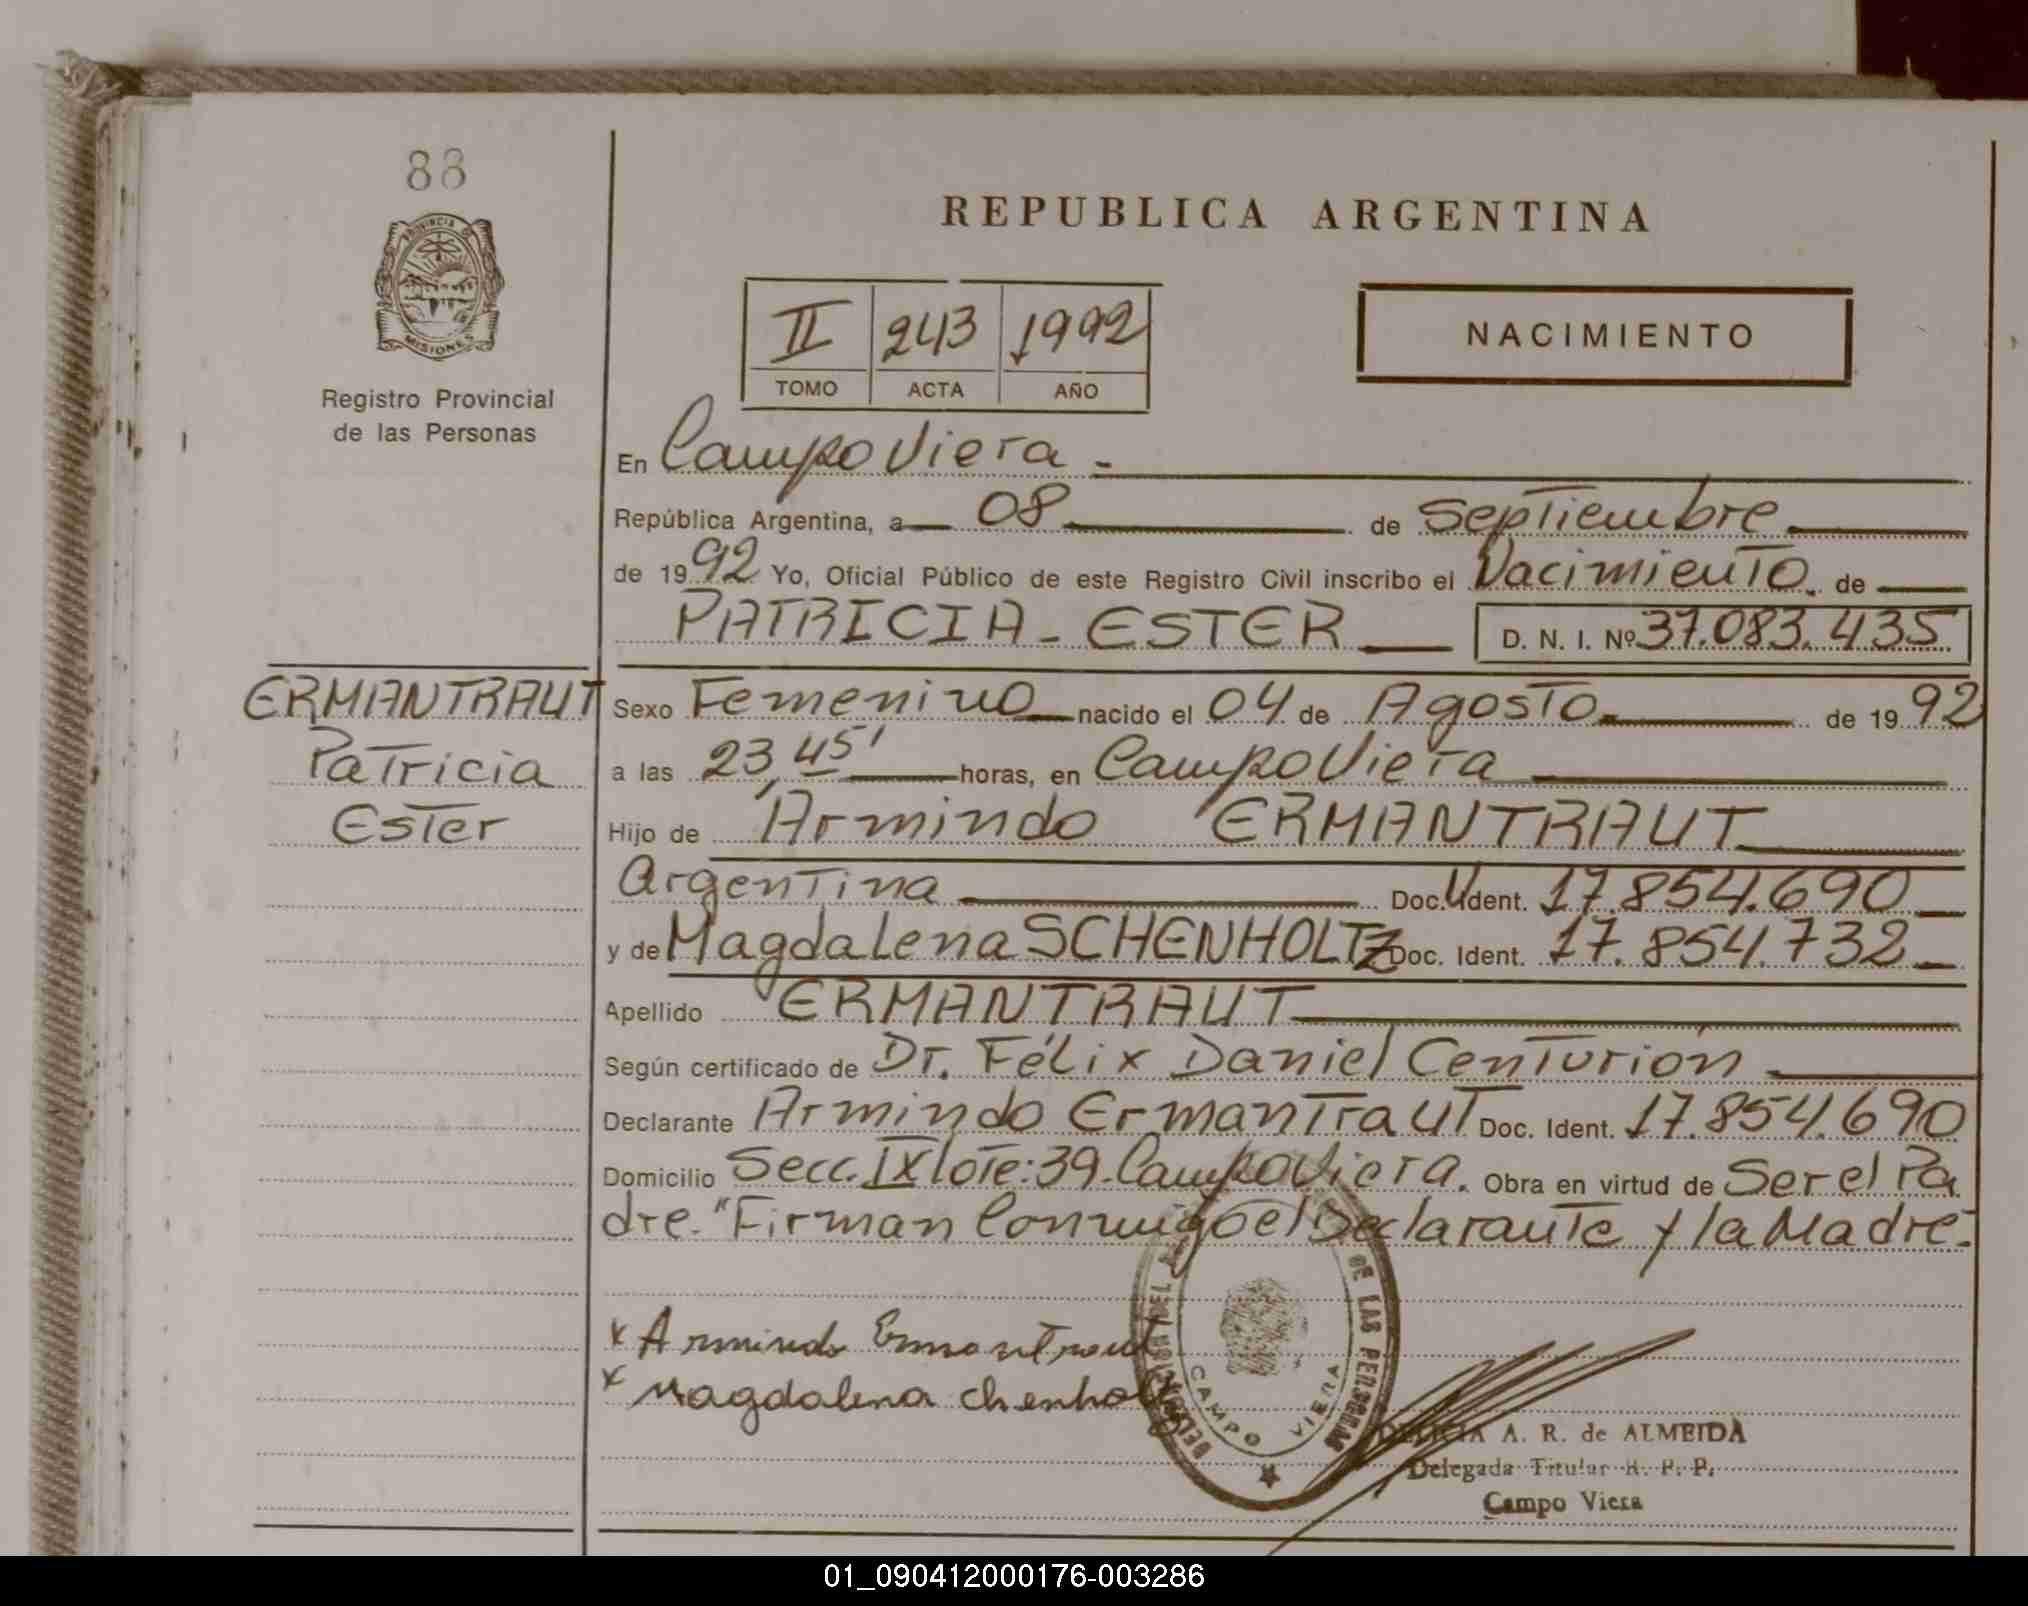 88
PROVINCIA DE
MISIONES
Registro Provincial
de las Personas
REPUBLICA ARGENTINA
II 243 1992
TOMO ACTA AÑO
NACIMIENTO
En Campo Viera -
República Argentina, a 08 de Septiembre
de 1992 Yo, Oficial Público de este Registro Civil inscribo el Nacimiento. de
PATRICIA - ESTER D. N. I. Nº 37.083.435
ERMANTRAUT
Patricia
Ester
Sexo Femenino nacido el 04 de Agosto de 1992
a las 23,45' horas, en Campo Viera
Hijo de Armindo ERMANTRAUT
Argentina Doc. Ident. 17.854.690
y de Magdalena SCHENHOLTZ Doc. Ident. 17.854.732
Apellido ERMANTRAUT
Según certificado de Dr. Félix Daniel Centurión
Declarante Armindo Ermantraut Doc. Ident. 17.854.690
Domicilio Secc. IX lote: 39. Campo Viera. Obra en virtud de Ser el Pa
dre. "Firman Conmigo el Declarante y la Madre.
x Armindo Ermantraut
x Magdalena chenholtz
DE LAS PERSONAS
CAMPO VIERA
A. R. de ALMEIDA
Delegada Titular R. P. P.
Campo Viera
01_090412000176-003286